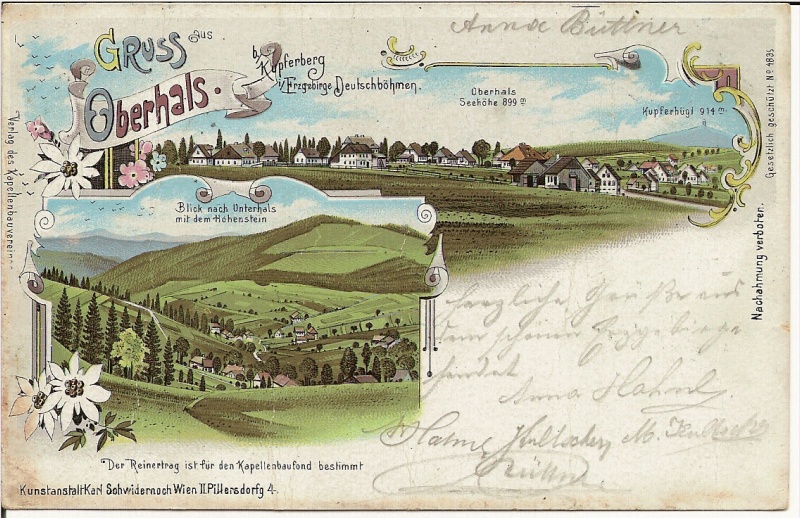 Anna Büttner
Gruss aus
Oberhals.
b. Kupferberg
i/Erzgebirge Deutschböhmen.
Oberhals
Seehöhe 899 m
Kupferhügl 914 m
Verlag des Kapellenbauvereines
Blick nach Unterhals
mit dem Höhenstein
Gesetzlich geschützt No 4835
Nachahmung verboten.
herzliche Grüße aus
dem schönen Erzgebirge
sendet
Anna Hahnl
M.
Der Reinertrag ist für den Kapellenbaufond bestimmt
Kunstanstalt Karl Schwidernoch Wien II. Pillersdorfg 4.